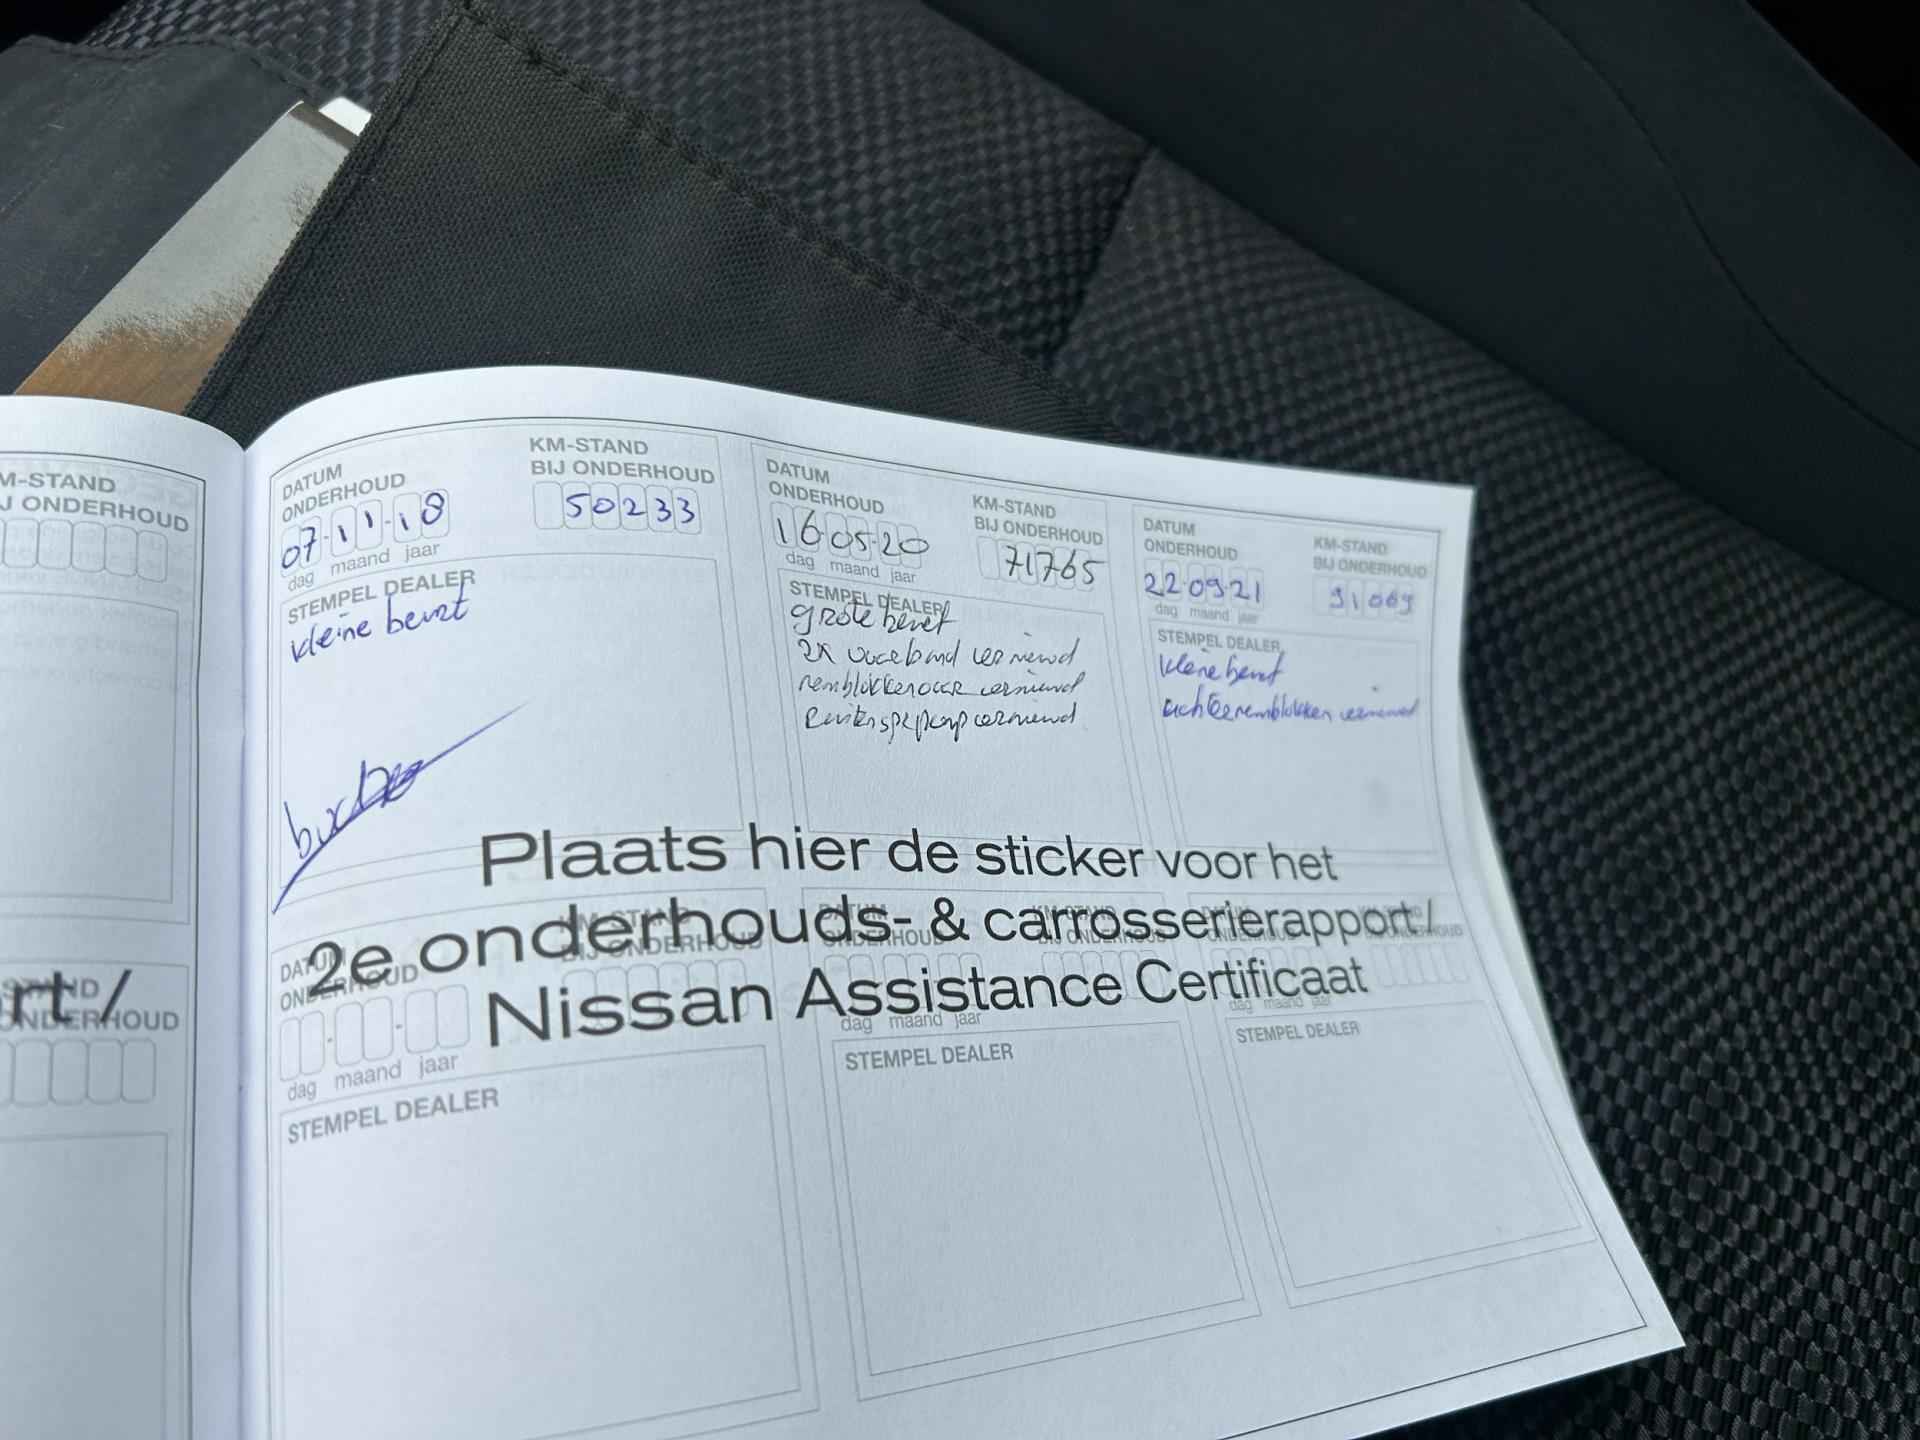 M-STAND
J ONDERHOUD
STAND
ONDERHOUD
rt /
DATUM
ONDERHOUD
07-11-18
dag maand jaar
KM-STAND
BIJ ONDERHOUD
50233
STEMPEL DEALER
kleine beurt
DATUM
ONDERHOUD
16-05-20
dag maand jaar
KM-STAND
BIJ ONDERHOUD
71765
STEMPEL DEALER
grote beurt
2x voorband vernieuwd
remblokken voor vernieuwd
vernieuwd
DATUM
ONDERHOUD
22-09-21
dag maand jaar
KM-STAND
BIJ ONDERHOUD
91069
STEMPEL DEALER
kleine beurt
achterremblokken vernieuwd
Plaats hier de sticker voor het
2e onderhouds- & carrosserierapport/
Nissan Assistance Certificaat
DATUM
ONDERHOUD
dag maand jaar
KM-STAND
BIJ ONDERHOUD
STEMPEL DEALER
DATUM
ONDERHOUD
dag maand jaar
KM-STAND
BIJ ONDERHOUD
STEMPEL DEALER
DATUM
ONDERHOUD
dag maand jaar
KM-STAND
BIJ ONDERHOUD
STEMPEL DEALER